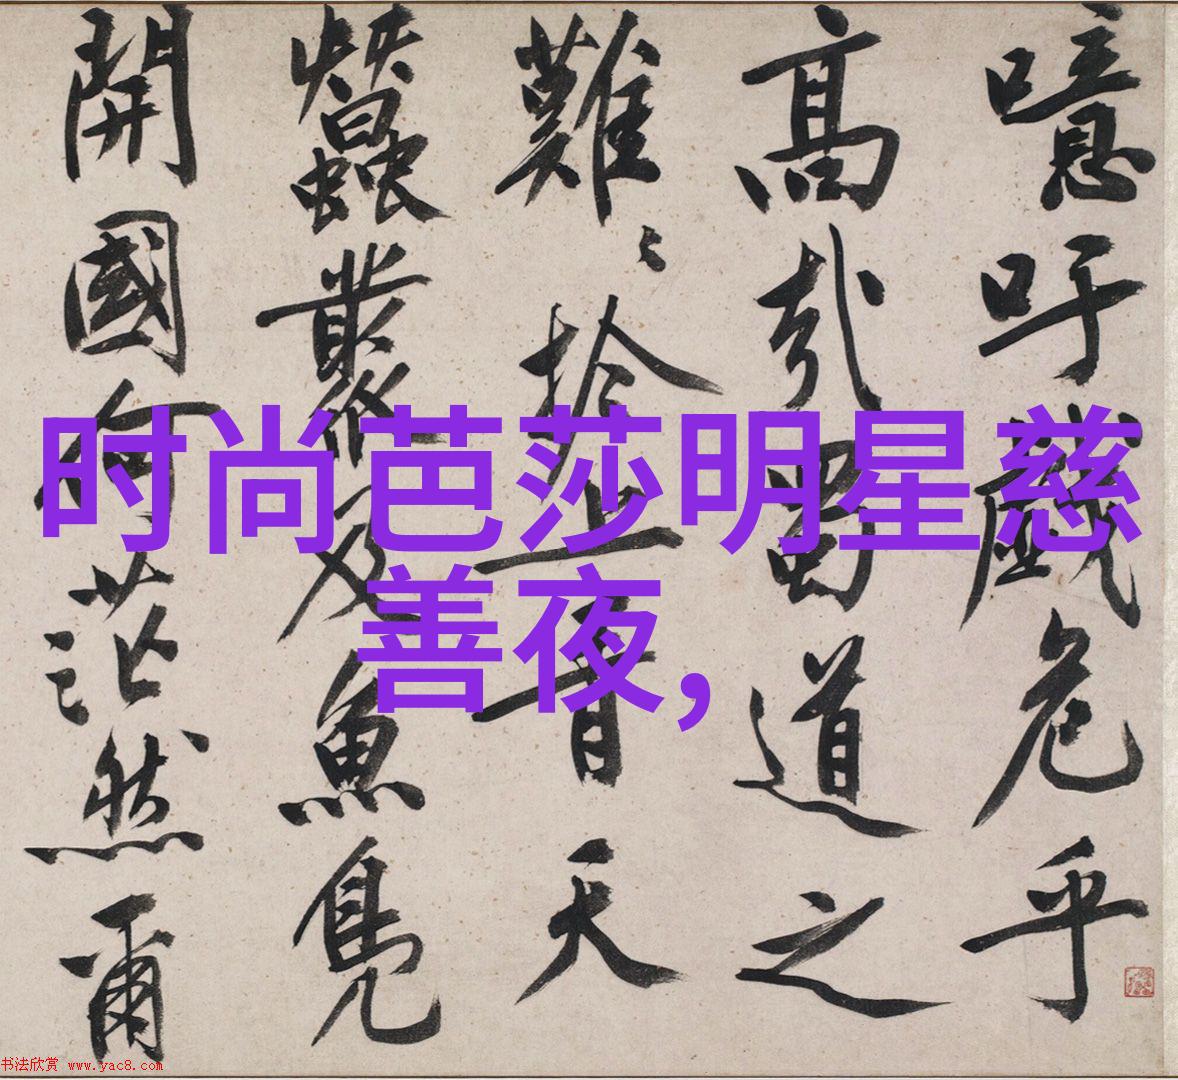 噫吁戲危乎
高哉蜀道之
難〻於上青天
蠶叢及魚鳧
開國何茫然爾
时尚芭莎明星慈
善夜,
书法欣赏 www.yac8.com